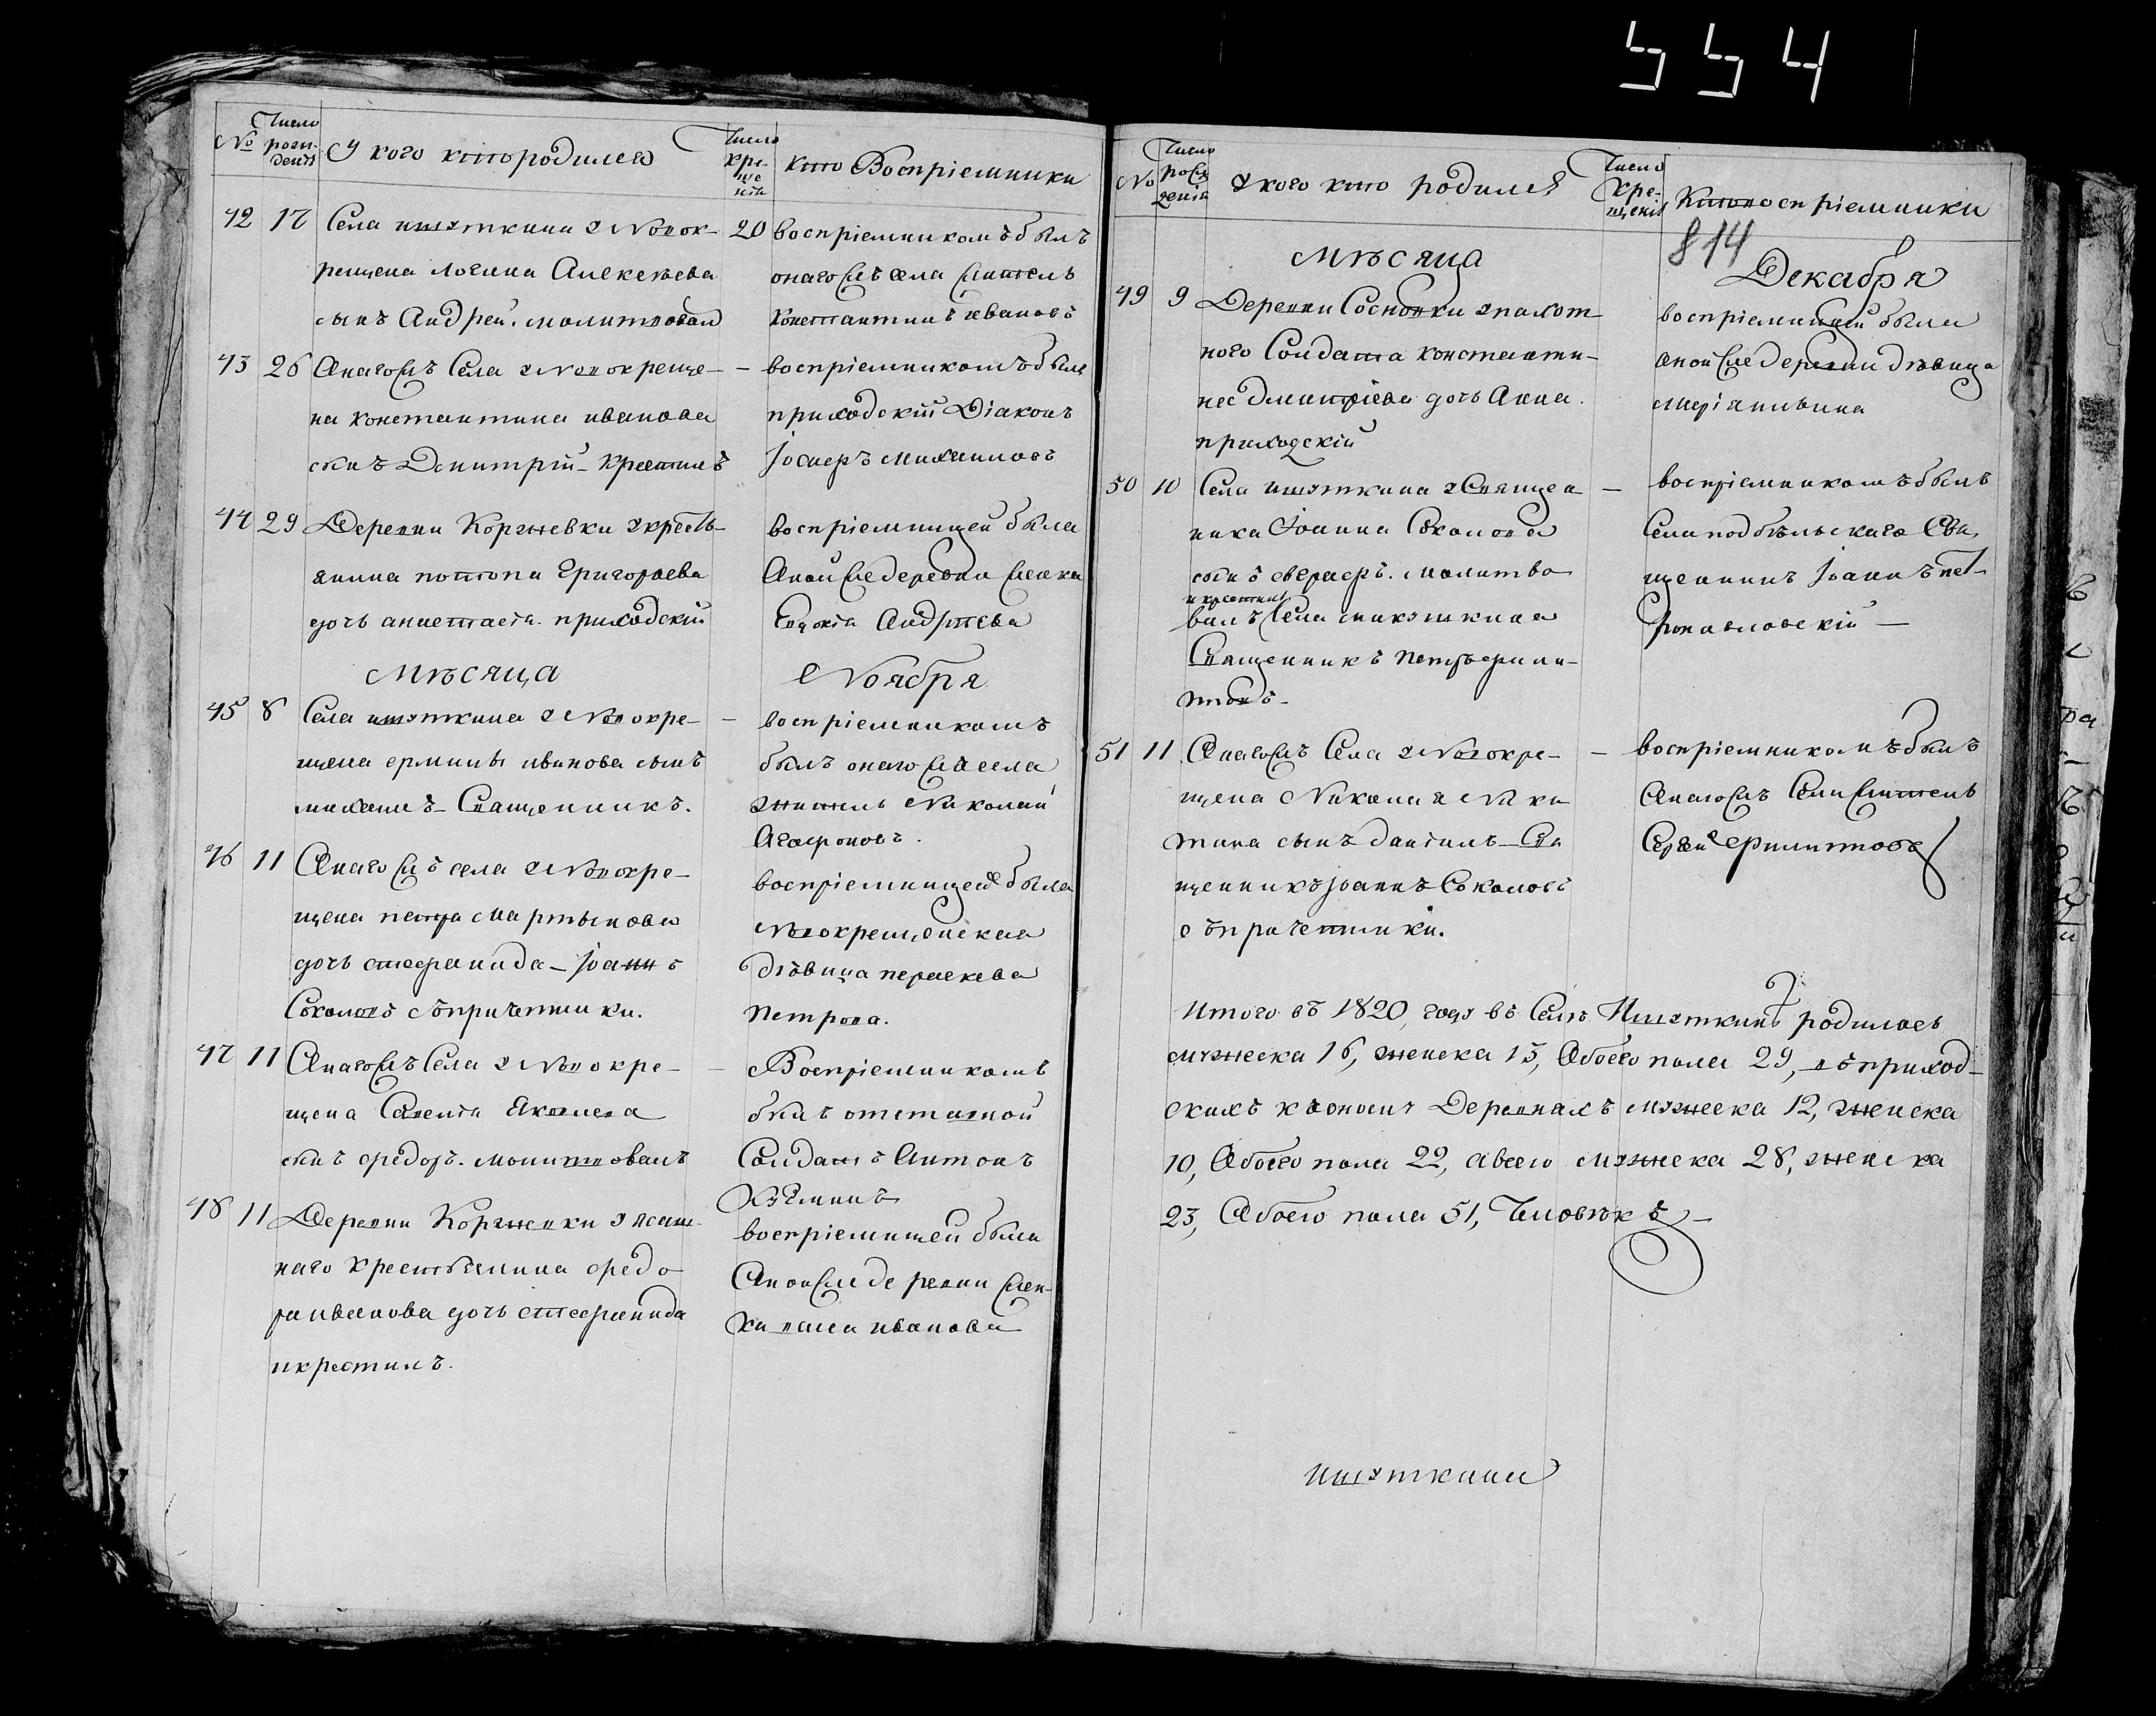 554
№
Число рожденія
У кого кто родился
Число крещенія
кто Воспріемники
42 17 Села ишуткина у Новок-
рещена Логина Алексѣева
сынъ Андрей. молитвовал
20 воспріемникомъ былъ
онагожъ села житель
константинъ ивановъ
43 26 Онагожъ Села у Новокреще-
на константина иванова
сынъ Димитрій - крестилъ
— воспріемникомъ былъ
приходскій Діаконъ
Іосифъ михаиловъ
44 29 Деревни Коржевки у кресть-
янина потапа Григорьева
дочь анастасія. приходскій
воспріемницей была
Оной же деревни женка
Евдокія Андрѣева
Мѣсяца Ноября
45 8 Села ишуткина у Новокре-
щена ермилы иванова сынъ
михаилъ - Священникъ.
— воспріемникомъ
былъ онагожъ села
житель Николай
Агафоновъ.
46 11 Онагожъ села у Новокре-
щена петра мартынова
дочь стефанида - Іоаннъ
Соколовъ съ причетники.
воспріемницею была
Новокрещенская
дѣвица параскева
петрова.
47 11 Онагожъ Села у Новокре-
щена Савелія Яковлева
сынъ федоръ. молитвовалъ
— Воспріемникомъ
былъ отставной
Солдатъ Антонъ
Кузминъ
48 11 Деревни Коржевки у ясаш-
наго крестьянина федо-
ра иванова дочь стефанида
и крестилъ.
воспріемницей была
Оной же деревни жен-
ка иванова
№
Число рожденія
У кого кто родился
Число крещенія
Кто воспріемники
814
Мѣсяца Декабря
49 9 Деревни Сосновки у пахот-
ного Солдата константи-
на Дмитріева дочь Анна.
приходскій
воспріемницей была
оной же деревни дѣвица
50 10 Села ишуткина у Священ
ника Іоанна Соколова
сынъ евграфъ. молитво
и крестил
валъ Села микушкина
Священникъ петръ филип-
повъ -
— воспріемникомъ былъ
Села подбѣльскаго Свя
щенникъ Іоаннъ пет-
ропавловскій —
51 11 Онагожъ Села у Новокре-
щена Николая Ники
тина сынъ даніилъ - Свя
щенникъ Іоаннъ Соколовъ
съ причетники.
— воспріемникомъ былъ
Онагожъ Села житель
Сергей филиповъ
Итого въ 1820, году въ Селѣ Ишуткинѣ родилось
мужеска 16, женска 13, Обоего пола 29, въ приход-
скихъ къ оному Деревняхъ мужеска 12, женска
10, Обоего пола 22, а всего мужеска 28, женска
23, Обоего пола 51, Человѣкъ —
ишуткина